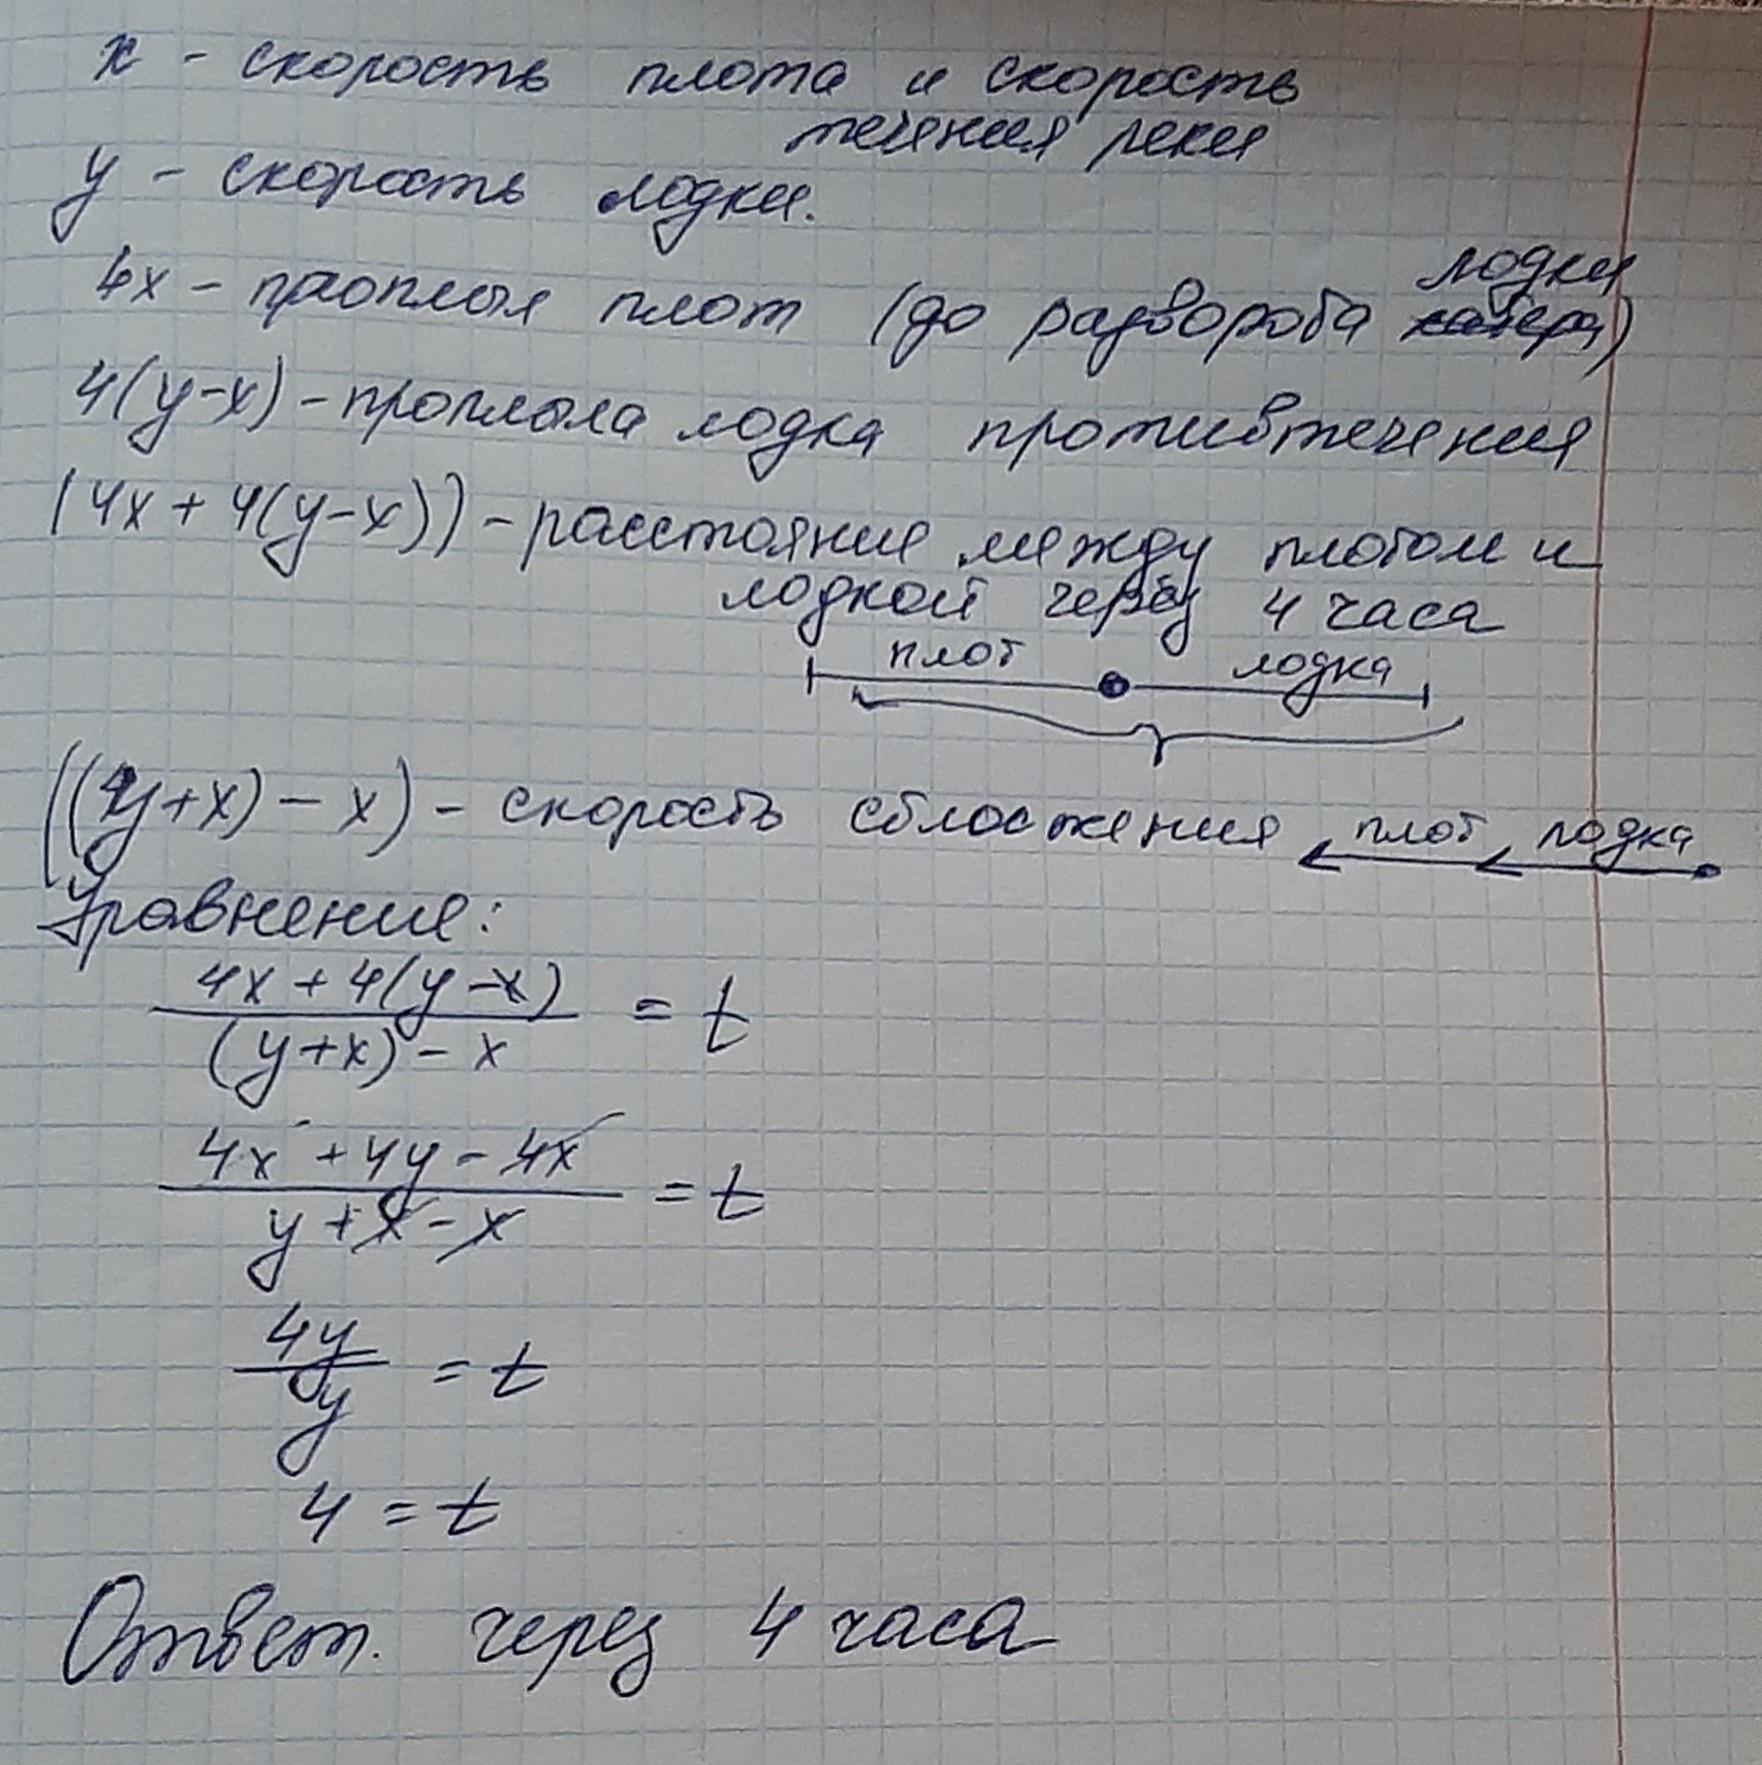 x - скорость плота и скорость
течения реки
y - скорость лодки.
4x - проплыл плот (до разворота лодки)
4(y-x) - проплыла лодка противтечения
(4x + 4(y-x)) - расстояние между плотом и
лодкой через 4 часа
плот лодка
((y+x) - x) - скорость сближения плот лодка
Уравнение:
4x + 4(y-x)
(y+x) - x
= t
4x + 4y - 4x
y + x - x
= t
4y
y
= t
4 = t
Ответ. через 4 часа